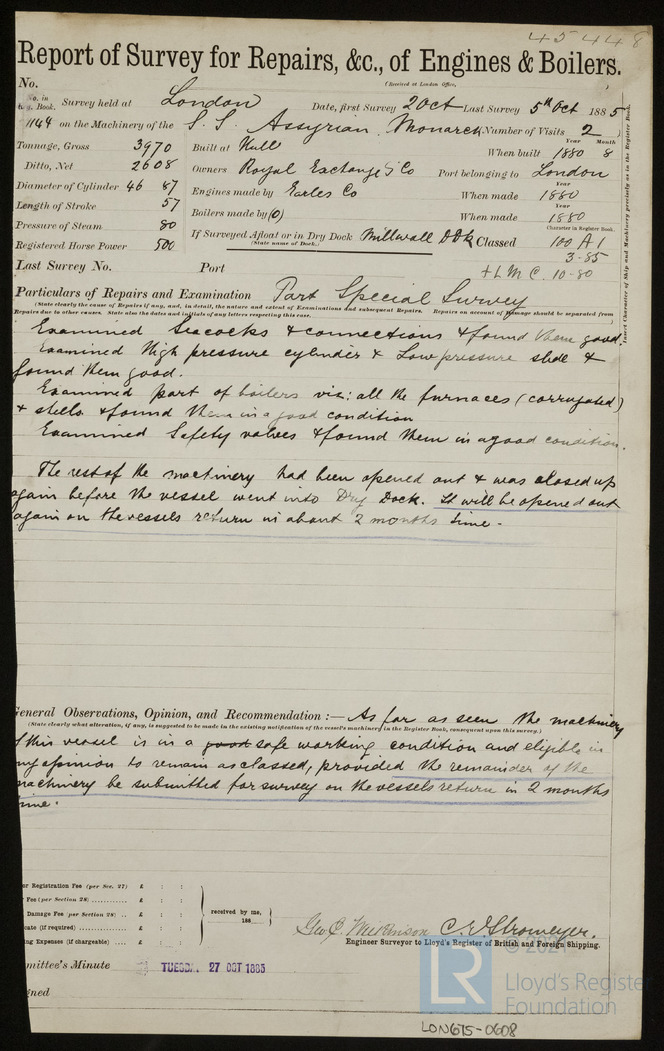 45448
Report of Survey for Repairs, &c., of Engines & Boilers.
(Received at London Office,
No.
No. in Reg. Book. Survey held at London Date, first Survey 2 Oct Last Survey 5th Oct 1885
1144 on the Machinery of the S.S. Assyrian Monarch Number of Visits 2
Tonnage, Gross 3970 Built at Hull When built Year 1880 Month 8
Ditto, Net 2608 Owners Royal Exchange S Co Port belonging to London
Diameter of Cylinder 46 87 Engines made by Earles Co When made Year 1880
Length of Stroke 57 Boilers made by (O) When made Year 1880
Pressure of Steam 80 If Surveyed Afloat or in Dry Dock Millwall DDk Classed Character in Register Book 100 A1
(State name of Dock.)
Registered Horse Power 500 3-85
Last Survey No. Port + L M C. 10-80
Particulars of Repairs and Examination Part Special Survey
(State clearly the cause of Repairs if any, and, in detail, the nature and extent of Examinations and subsequent Repairs. Repairs on account of Damage should be separated from
Repairs due to other causes. State also the dates and initials of any letters respecting this case.
Insert Character of Ship and Machinery precisely as in the Register Book.
Examined Seacocks & connections & found them good.
Examined High pressure cylinder & Low pressure slide &
found them good.
Examined part of boilers viz: all the furnaces (corrugated)
& shells & found them in a good condition
Examined Safety valves & found them in a good condition.
The rest of the machinery had been opened out & was closed up
again before the vessel went into Dry Dock. It will be opened out
again on the vessels return in about 2 months time.
General Observations, Opinion, and Recommendation :— As far as seen the machinery
(State clearly what alteration, if any, is suggested to be made in the existing notification of the vessel's machinery in the Register Book, consequent upon this survey.)
of this vessel is in a good safe working condition and eligible in
my opinion to remain as classed, provided the remainder of the
machinery be submitted for survey on the vessels return in 2 months
time.
or Registration Fee (per Sec. 27) £ : :
Fee (per Section 28) £ : :
Damage Fee (per Section 28) £ : :
cate (if required) £ : :
ing Expenses (if chargeable) £ : :
received by me,
188
Geo C. Wilkinson C. E. Stromeyer.
Engineer Surveyor to Lloyd's Register of British and Foreign Shipping.
mmittee's Minute TUESDAY 27 OCT 1885
gned
© 2021
LR Lloyd's Register
Foundation
LON675-0608